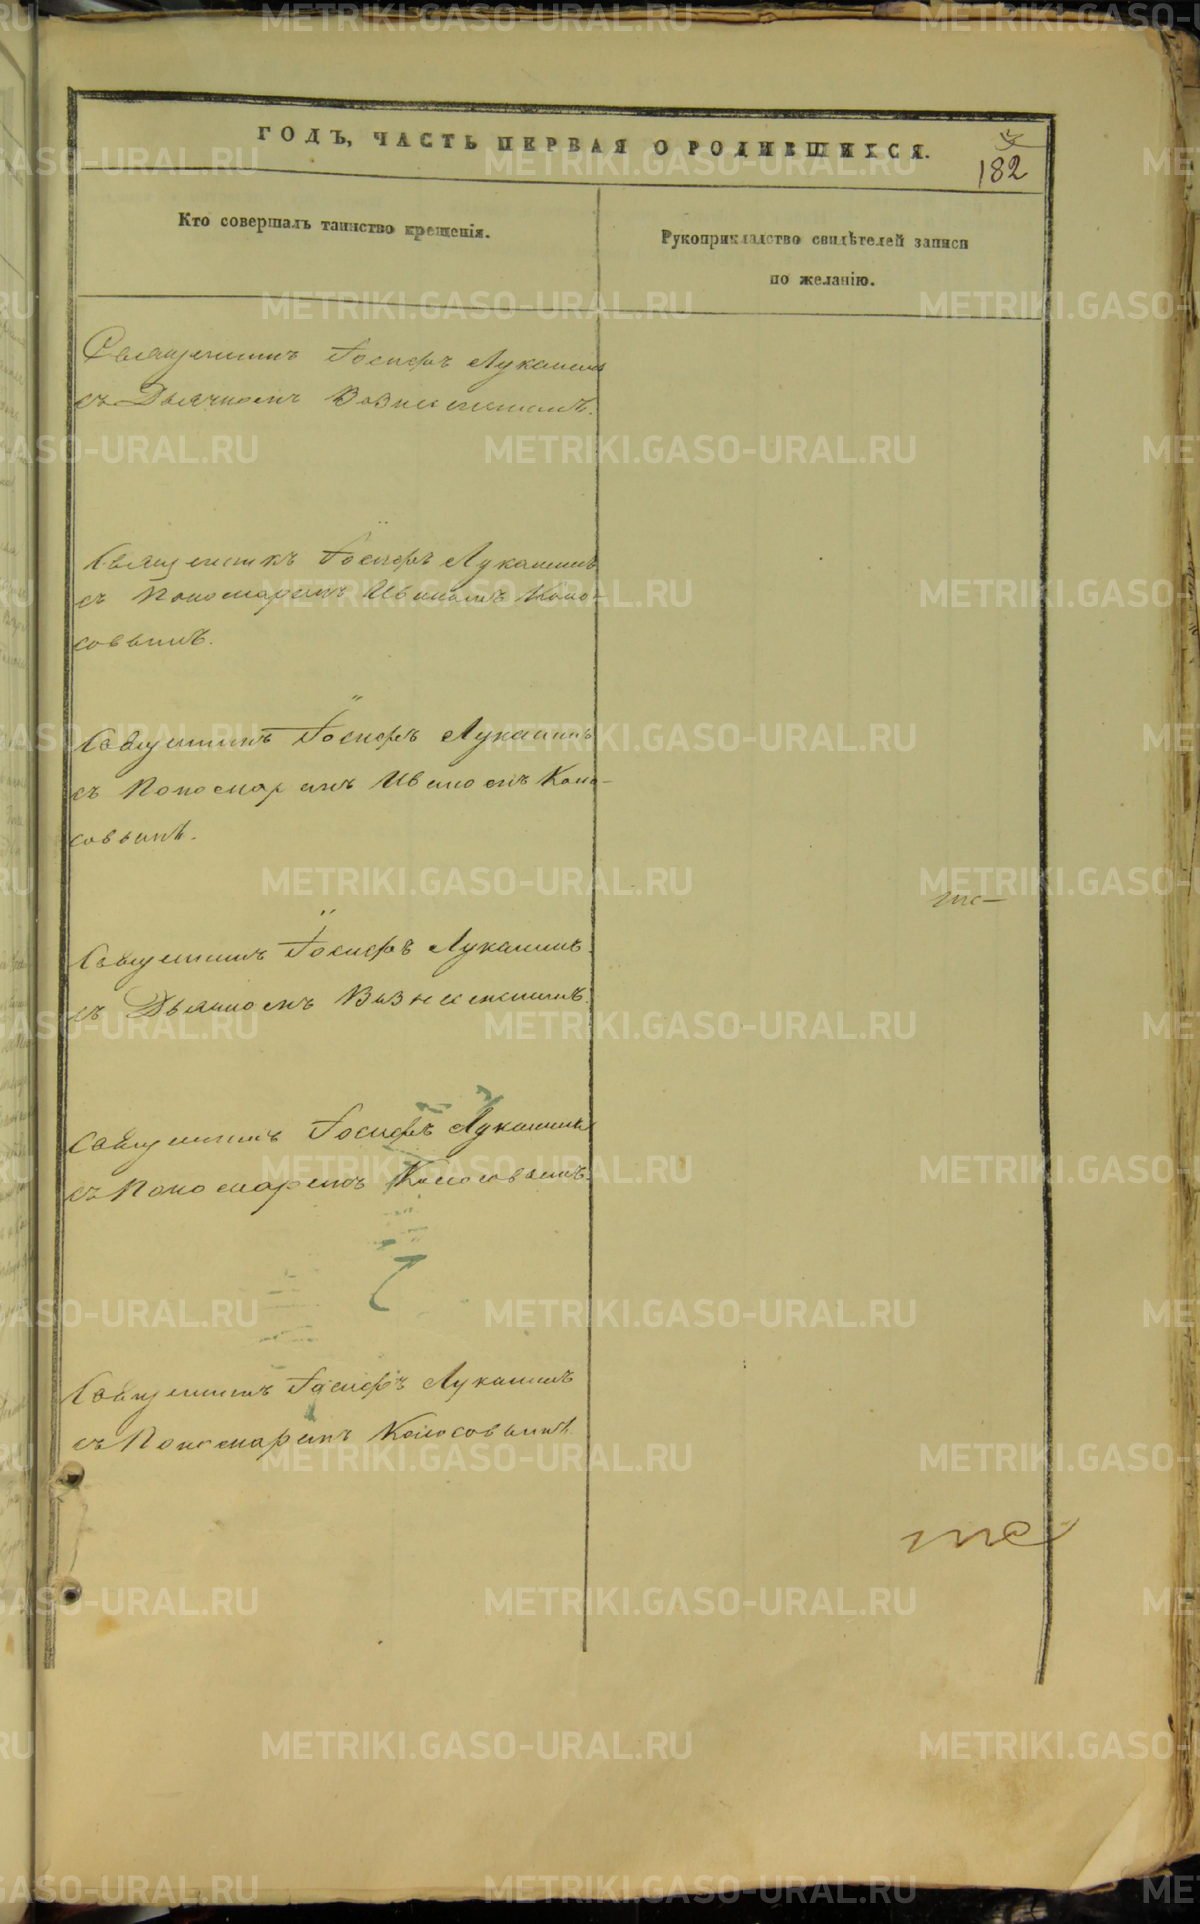 ГОДЪ, ЧАСТЬ ПЕРВАЯ О РОДИВШИХСЯ.
182
Кто совершалъ таинство крещенія.
Рукоприкладство свидѣтелей записи
по желанію.
Священникъ Іосифъ Лукашинъ
съ Дьячкомъ Вознесенскимъ.
Священникъ Іосифъ Лукашинъ
съ Пономаремъ Иваномъ Коло-
совымъ.
Священникъ Іосифъ Лукашинъ
съ Пономаремъ Иваномъ Коло-
совымъ.
Священникъ Іосифъ Лукашинъ
съ Дьячкомъ Вознесенскимъ.
Священникъ Іосифъ Лукашинъ
съ Пономаремъ Колосовымъ.
Священникъ Іосифъ Лукашинъ
съ Пономаремъ Колосовымъ
METRIKI.GASO-URAL.RU